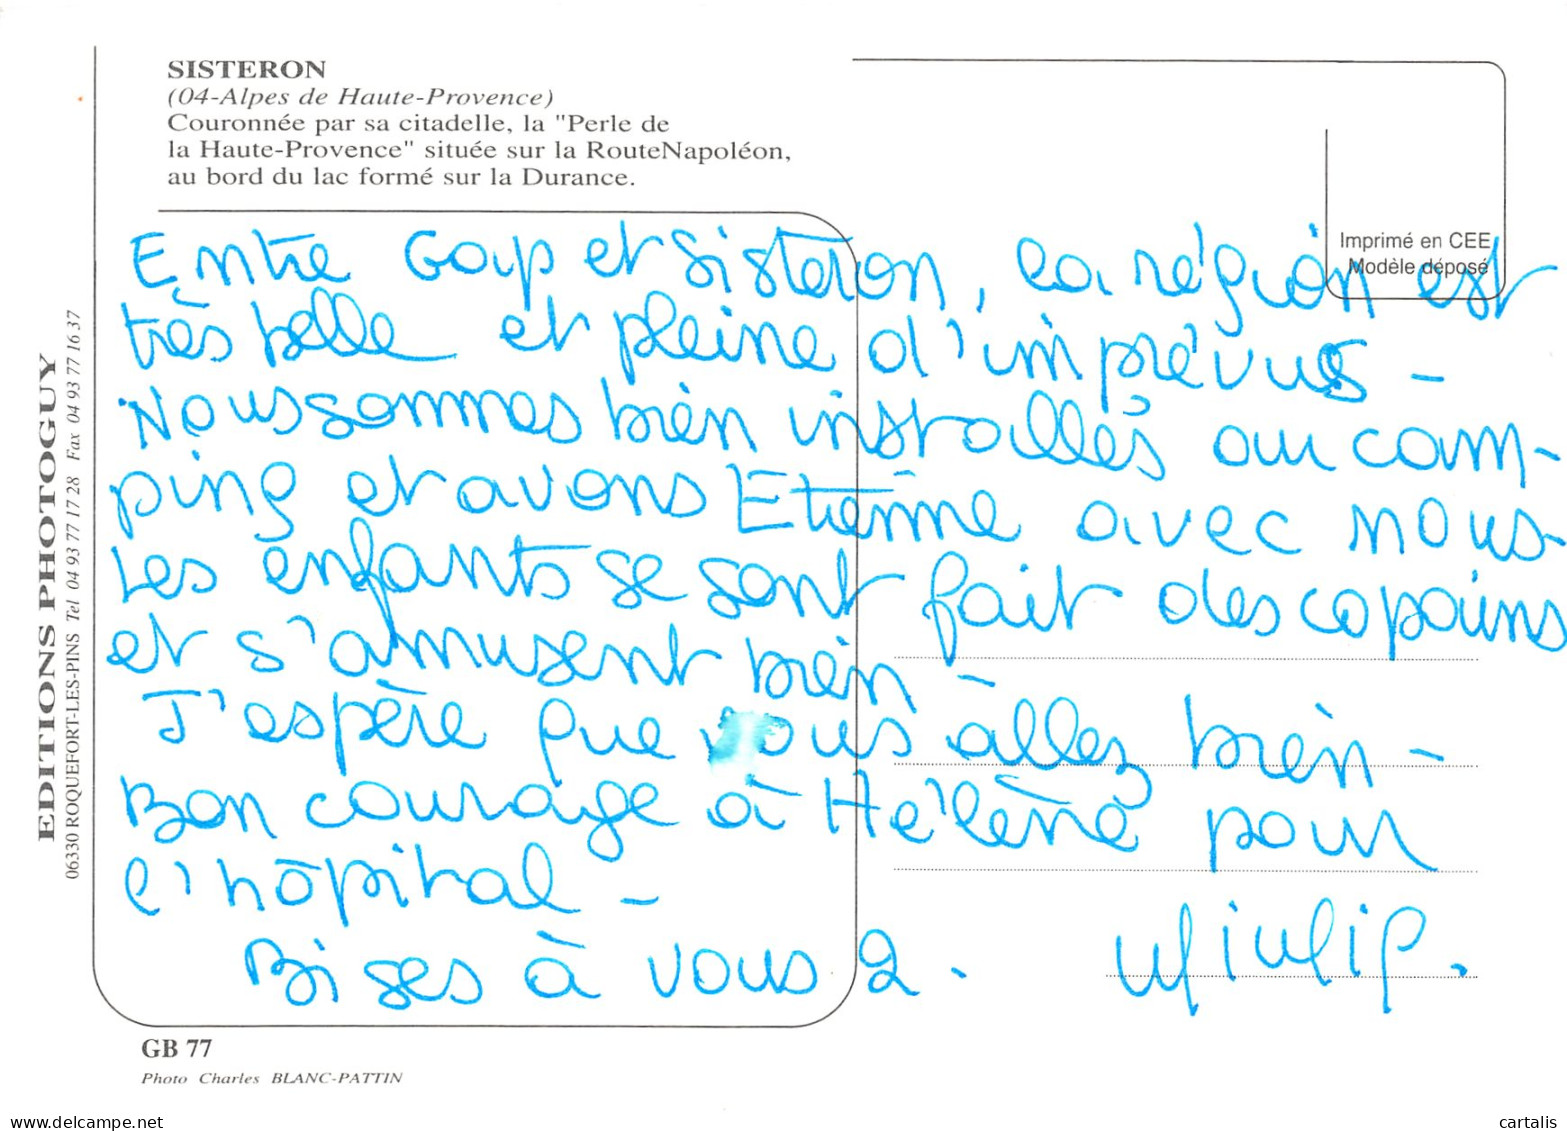 SISTERON
(04-Alpes de Haute-Provence)
Couronnée par sa citadelle, la "Perle de
la Haute-Provence" située sur la RouteNapoléon,
au bord du lac formé sur la Durance.
Imprimé en CEE
Modèle déposé
Entre Gap et Sisteron, la région est
très belle et pleine d'imprévus -
Nous sommes bien installés au cam-
ping et avons Etienne avec nous -
Les enfants se sont fait des copains
et s'amusent bien -
J'espère que vous allez bien -
Bon courage à Hélène pour
l'hôpital -
Bises à vous 2.
EDITIONS PHOTOGUY
06330 ROQUEFORT-LES-PINS Tel 04 93 77 17 28 Fax 04 93 77 16 37
GB 77
Photo Charles BLANC-PATTIN
www.delcampe.net
cartalis